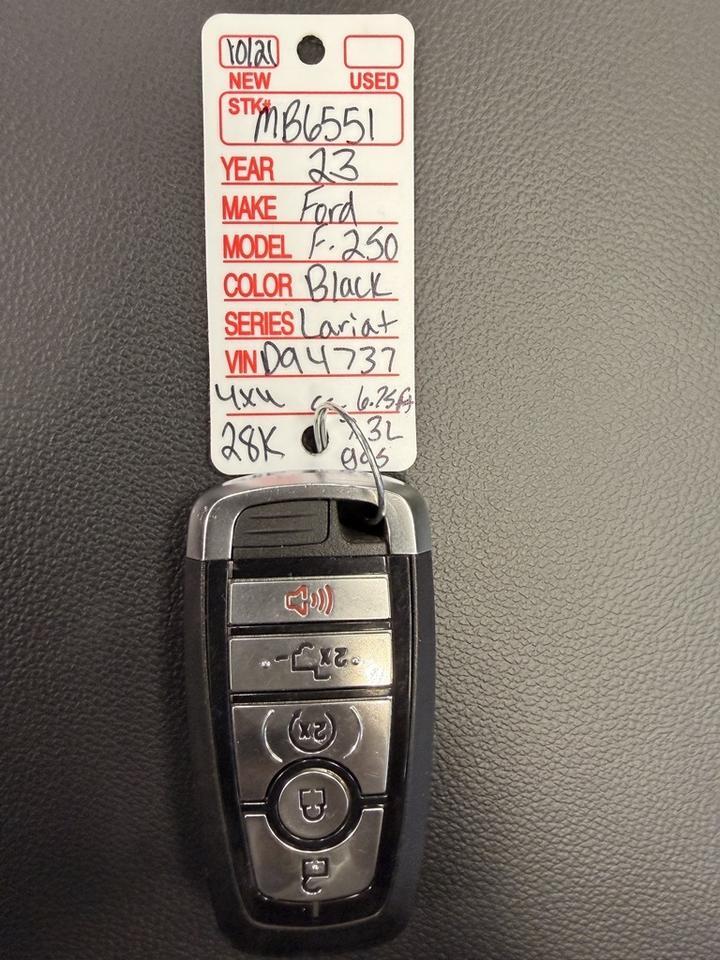 10/21
NEW USED
STK# MB6551
YEAR 23
MAKE Ford
MODEL F-250
COLOR Black
SERIES Lariat
VIN D94737
4x4 6.75ft
28K 3L
gas
2x
2x